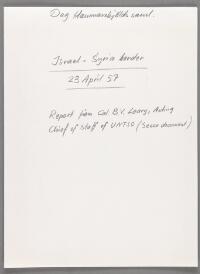 Dag Hammarskjölds saml.
Israel - Syria border
23 April 57
Report from Col. B.V. Leary, Acting
Chief of Staff of UNTSO (Secco document)